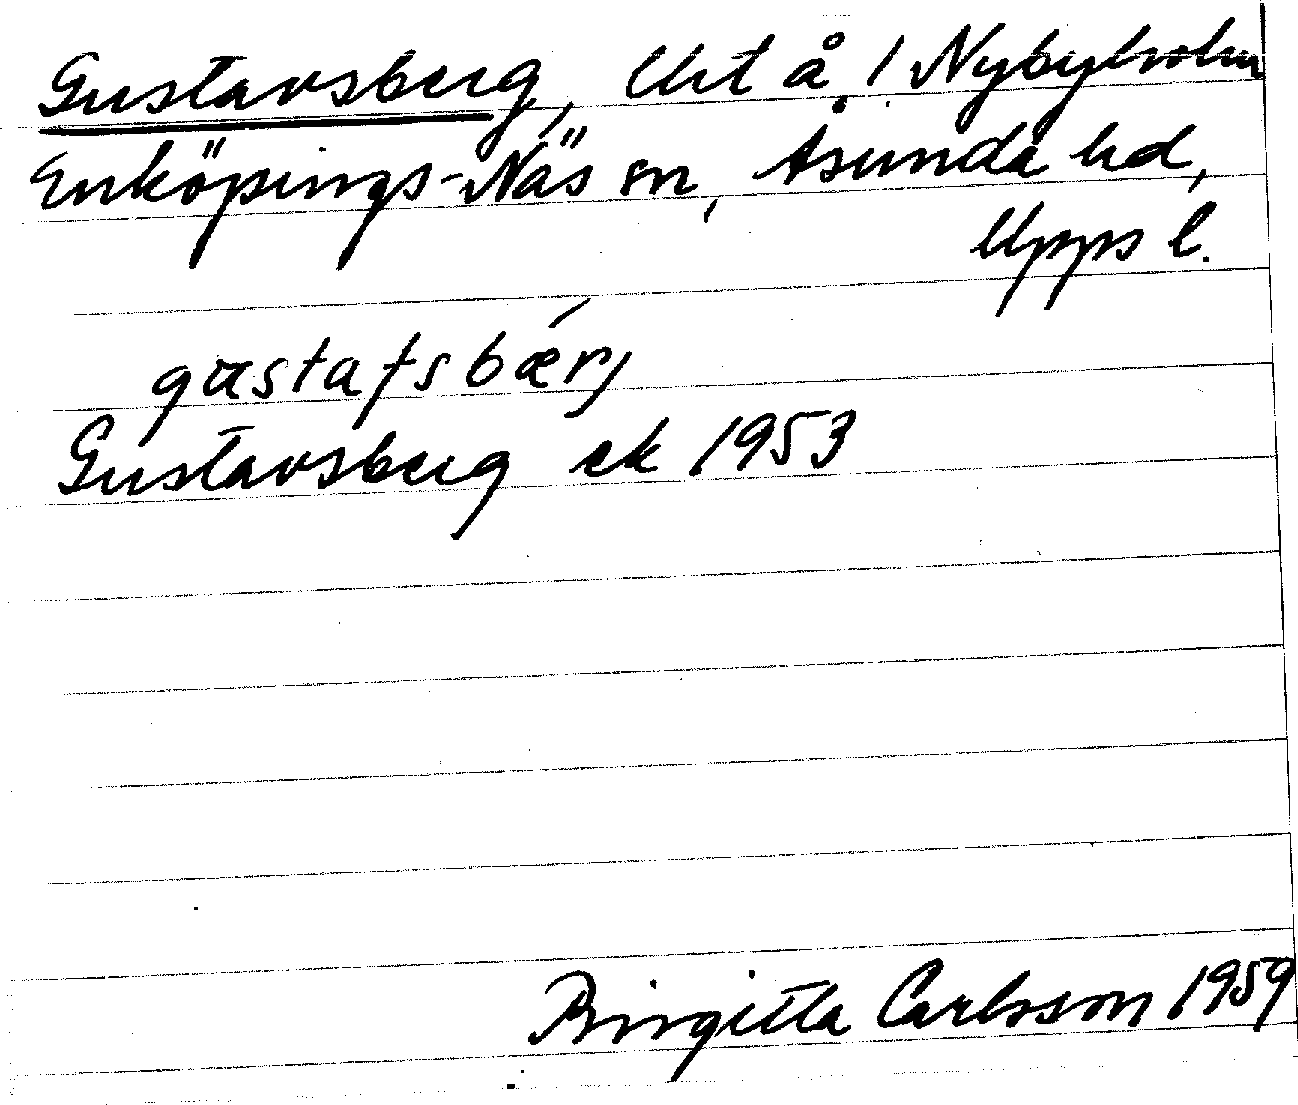 Gustavsberg, Uht å 1 Nybyholm
Enköpings-Näs sn, Åsunda hd,
Upps l.
gustafsbærj
Gustavsberg ek 1953
Birgitta Carlsson 1959